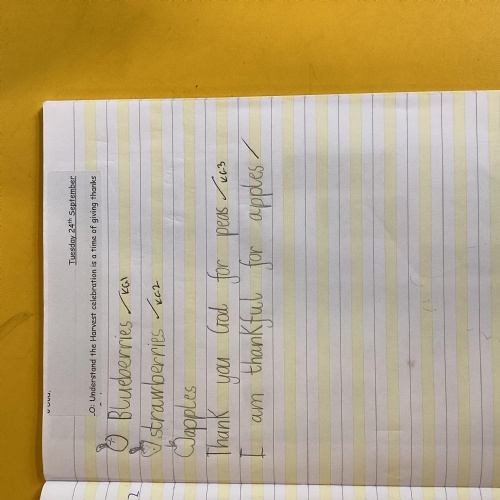 Tuesday 24th September
LO: Understand the Harvest celebration is a time of giving thanks
Blueberries ✓ KG1
strawberries ✓ KG2
apples
Thank you God for peas ✓ KG3
I am thankful for apples ✓